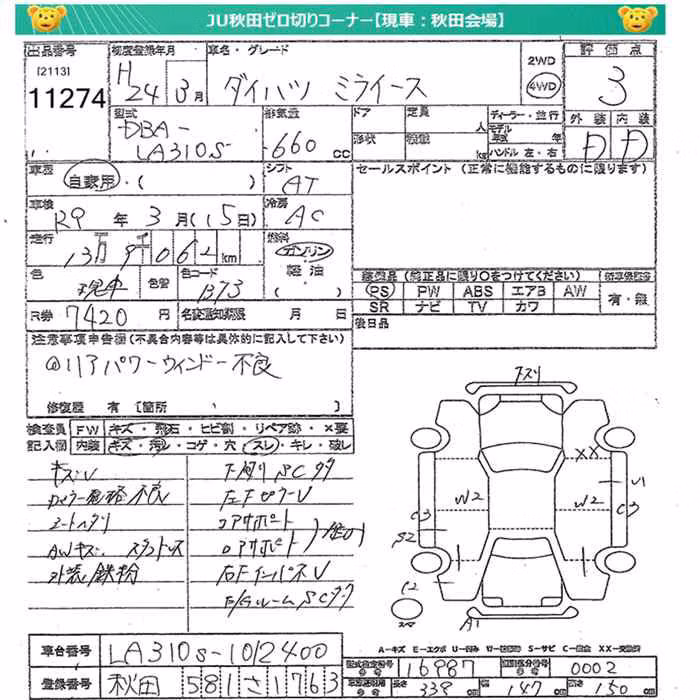 JU秋田ゼロ切りコーナー【現車：秋田会場】
出品番号 初度登録年月 車名・グレード 2WD 評価点
[2113] H24 3月 ダイハツ ミライース 4WD 3
11274
型式 排気量 ドア 定員 人 ディーラー・並行 外装 内装
DBA-LA310S 660cc 形状 積載 kg モデル年式 年 D D
ハンドル 左・右
車歴 自家用・( ) シフト AT セールスポイント (正常に機能するものに限ります)
車検 R9年3月(15日) 冷房 AC
走行 13万9千062km 燃料 ガソリン
軽油
( )
色 色替 色コード B73 装備品 (純正品に限り○をつけてください)
PS PW ABS エアB AW 有・無
SR ナビ TV カワ
R券 7420円 名変通知期限 月 日 後日品
注意事項申告欄(不具合内容等は具体的に記入して下さい)
リアパワーウィンドー不良
修復歴 有 [箇所 ]
検査員 FW キズ・飛石・ヒビ割・リペア跡・×要
記入欄 内装 キズ・汚レ・コゲ・穴・スレ・キレ・破レ
キズU
不良
AWキズ スタッドレス
外装鉄粉
コアサポート
ロアサポート
右FインパネU
下スリ
XX
U1
W2 W2
C3 C3
S2
C2
A1
A-キズ E-エクボ U-凹み S-サビ C-腐食 XX-交換済
車台番号 LA310S-1012400
登録番号 秋田 581 さ 1763
型式指定番号 16987 類別区分番号 0002
長さ 339cm 幅 147cm 高さ 150cm